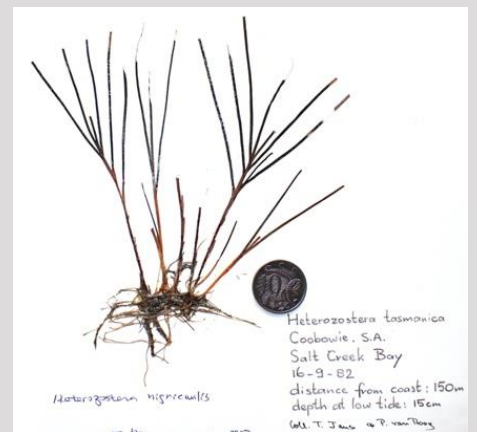 Heterozostera tasmanica
Coobowie. S.A.
Salt Creek Bay
16-9-82
distance from coast: 150m
depth at low tide: 15cm
Coll. T. Jans
Heterozostera nigricaulis